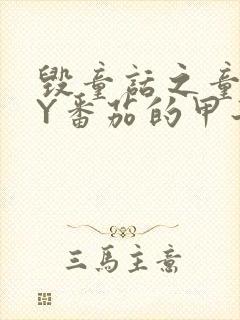 毁童话之童
Y番茄的甲
三馬主意